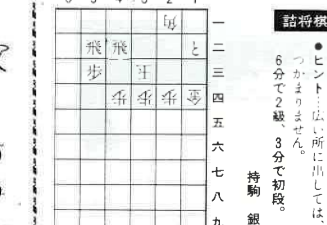 詰将棋
●ヒント…広い所に出しては、
つかまりません。
6分で2級、3分で初段。
持駒 銀
一
二
三
四
五
六
七
八
九
角
飛 飛 と
歩 玉
歩 歩 歩 金